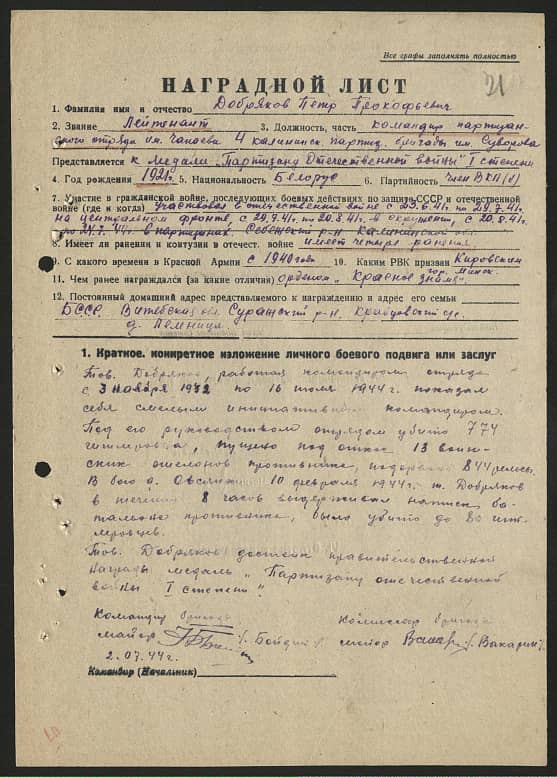 Все графы заполнять полностью
21
НАГРАДНОЙ ЛИСТ
1. Фамилия имя и отчество Добряков Петр Прокофьевич
2. Звание Лейтенант 3. Должность, часть командир партизан-
ского отряда им. Чапаева 4 калининск. партиз. бригады им. Суворова
Представляется к медали "Партизану Отечественной войны" I степени
4. Год рождения 1921 г. 5. Национальность Белорус 6. Партийность член ВКП(б)
7. Участие в гражданской войне, последующих боевых действиях по защите СССР и отечественной
войне (где и когда) участвовал в отечественной войне с 23.6.41 г. по 29.7.41 г.
на центральном фронте, с 29.7.41 г. по 20.8.41 г. в окружен., с 20.8.41 г.
по 24.7.44 г. в партизанах. Себежский р-н Калининской обл.
8. Имеет ли ранения и контузии в отечест. войне имеет четыре ранения
9. С какого времени в Красной Армии с 1940 года 10. Каким РВК призван Кировским
гор. Минск.
11. Чем ранее награждался (за какие отличия) орденом "Красное знамя"
12. Постоянный домашний адрес представляемого к награждению и адрес его семьи
БССР Витебская обл. Суражский р-н.
д.
1. Краткое, конкретное изложение личного боевого подвига или заслуг
Тов. Добряков, работая командиром отряда
с 3 ноября 1942 по 16 июля 1944 г. показал
себя смелым инициативным командиром.
Под его руководством отрядом убито 774
гитлеровца, пущено под откос 13 воин-
ских эшелонов противника, подорвано 844 рельсы.
В бою д. 10 февраля 1944 г. т. Добряков
в течении 8 часов выдерживал натиск ба-
тальона противника, было убито до 80 гитл-
еровцев.
Тов. Добряков достоин правительственной
награды медаль "Партизану отечественной
войны I степени"
Командир бригады Комиссар бригады
майор майор /Вакарин/
2.07.44 г.
Командир (Начальник)